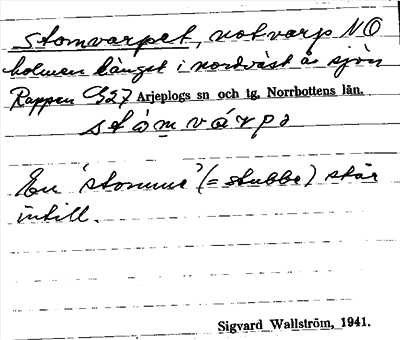 Stomvarpet, notvarp NO
holmen längst i nordväst av sjön
Rappen G27 Arjeplogs sn och tg, Norrbottens län.
stòmvárpə
En 'stomme' (= stubbe) står
intill.
Sigvard Wallström, 1941.